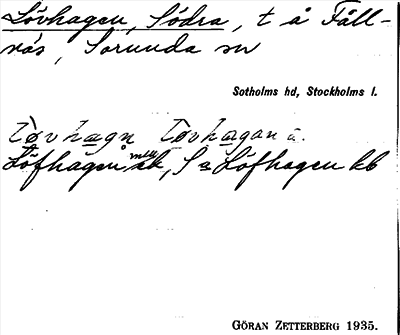 Lövhagen, Södra, t å Fåll-
näs, Sorunda sn
Sotholms hd, Stockholms l.
Løvhagn Løvhagan
Löfhagen ak, S Löfhagen kb
GÖRAN ZETTERBERG 1935.